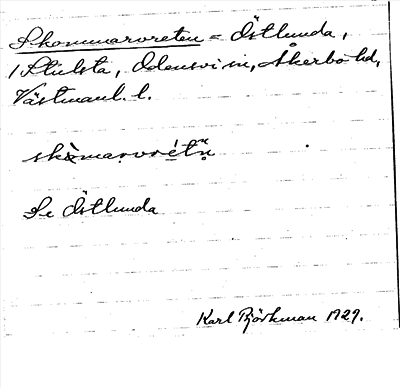 Skommarvreten = Östlunda,
1 Stulsta, Odensvi sn, Åkerbo hd,
Västmanl. l.
skòmarvrétn̥
Se Östlunda
Karl Björkman 1929.